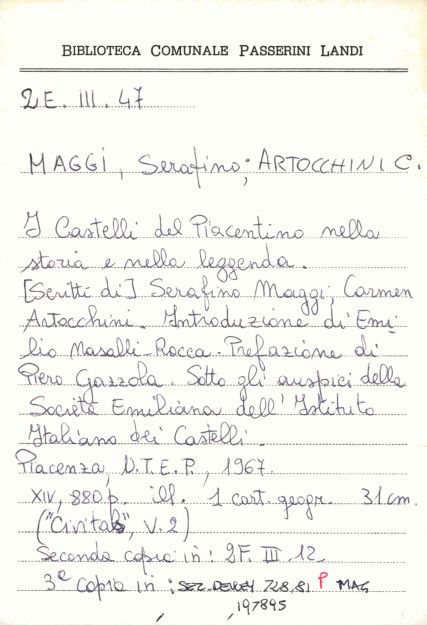 BIBLIOTECA COMUNALE PASSERINI LANDI
2E. III. 47
MAGGI, Serafino; ARTOCCHINI C.
I Castelli del Piacentino nella
storia e nella leggenda.
[Scritti di] Serafino Maggi, Carmen
Artocchini. Introduzione di Emi-
lio Nasalli-Rocca. Prefazione di
Piero Gazzola. Sotto gli auspici della
Società Emiliana dell'Istituto
Italiano dei Castelli.
Piacenza, U.T.E.P., 1967.
XIV, 880 p. ill. 1 cart. geogr. 31 cm.
("Civitas", V. 2)
Seconda copia in: 2F. III. 12
3ª Copia in: SEZ. DEWEY 728.81 P MAG
197895